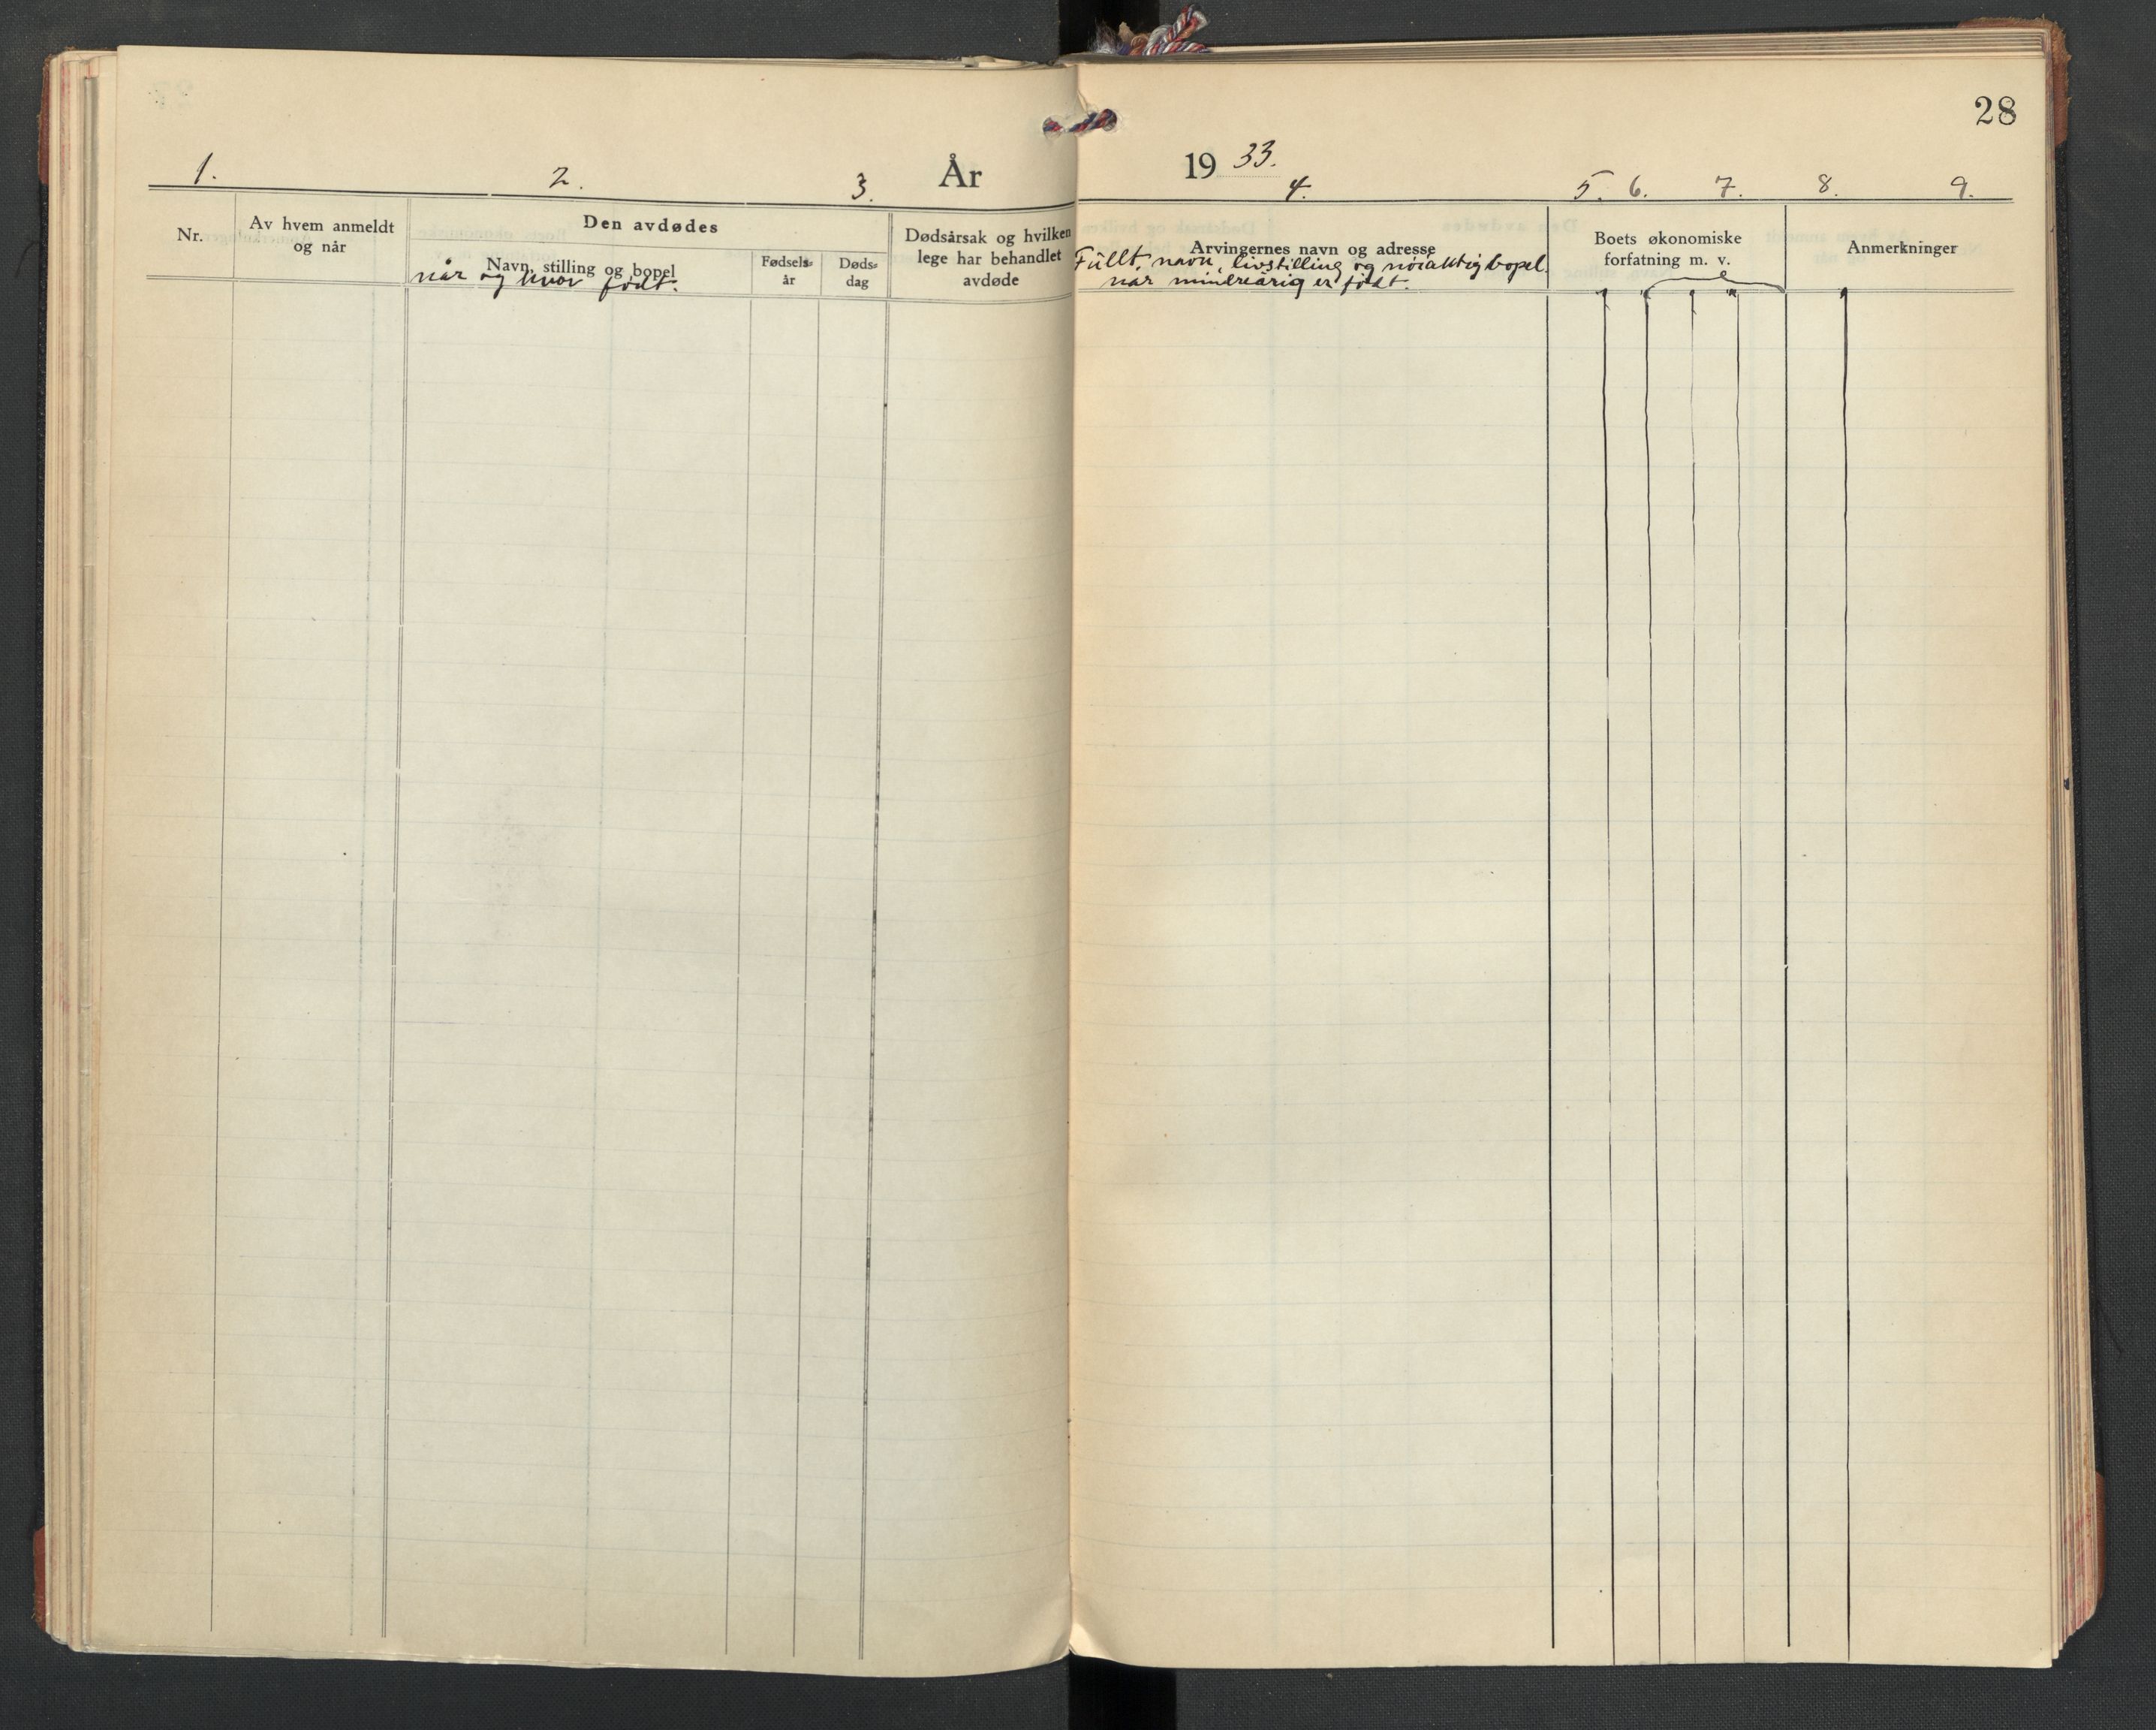 28
År 1933.
1. 2. 3. 4. 5. 6. 7. 8. 9.
Nr.
Av hvem anmeldt
og når
Den avdødes
Navn, stilling og bopel
når og hvor født.
Fødsels-
år
Døds-
dag
Dødsårsak og hvilken
lege har behandlet
avdøde
Arvingernes navn og adresse
Fullt navn, livstilling og nøiaktig bopel.
når mindreårig er født.
Boets økonomiske
forfatning m. v.
Anmerkninger